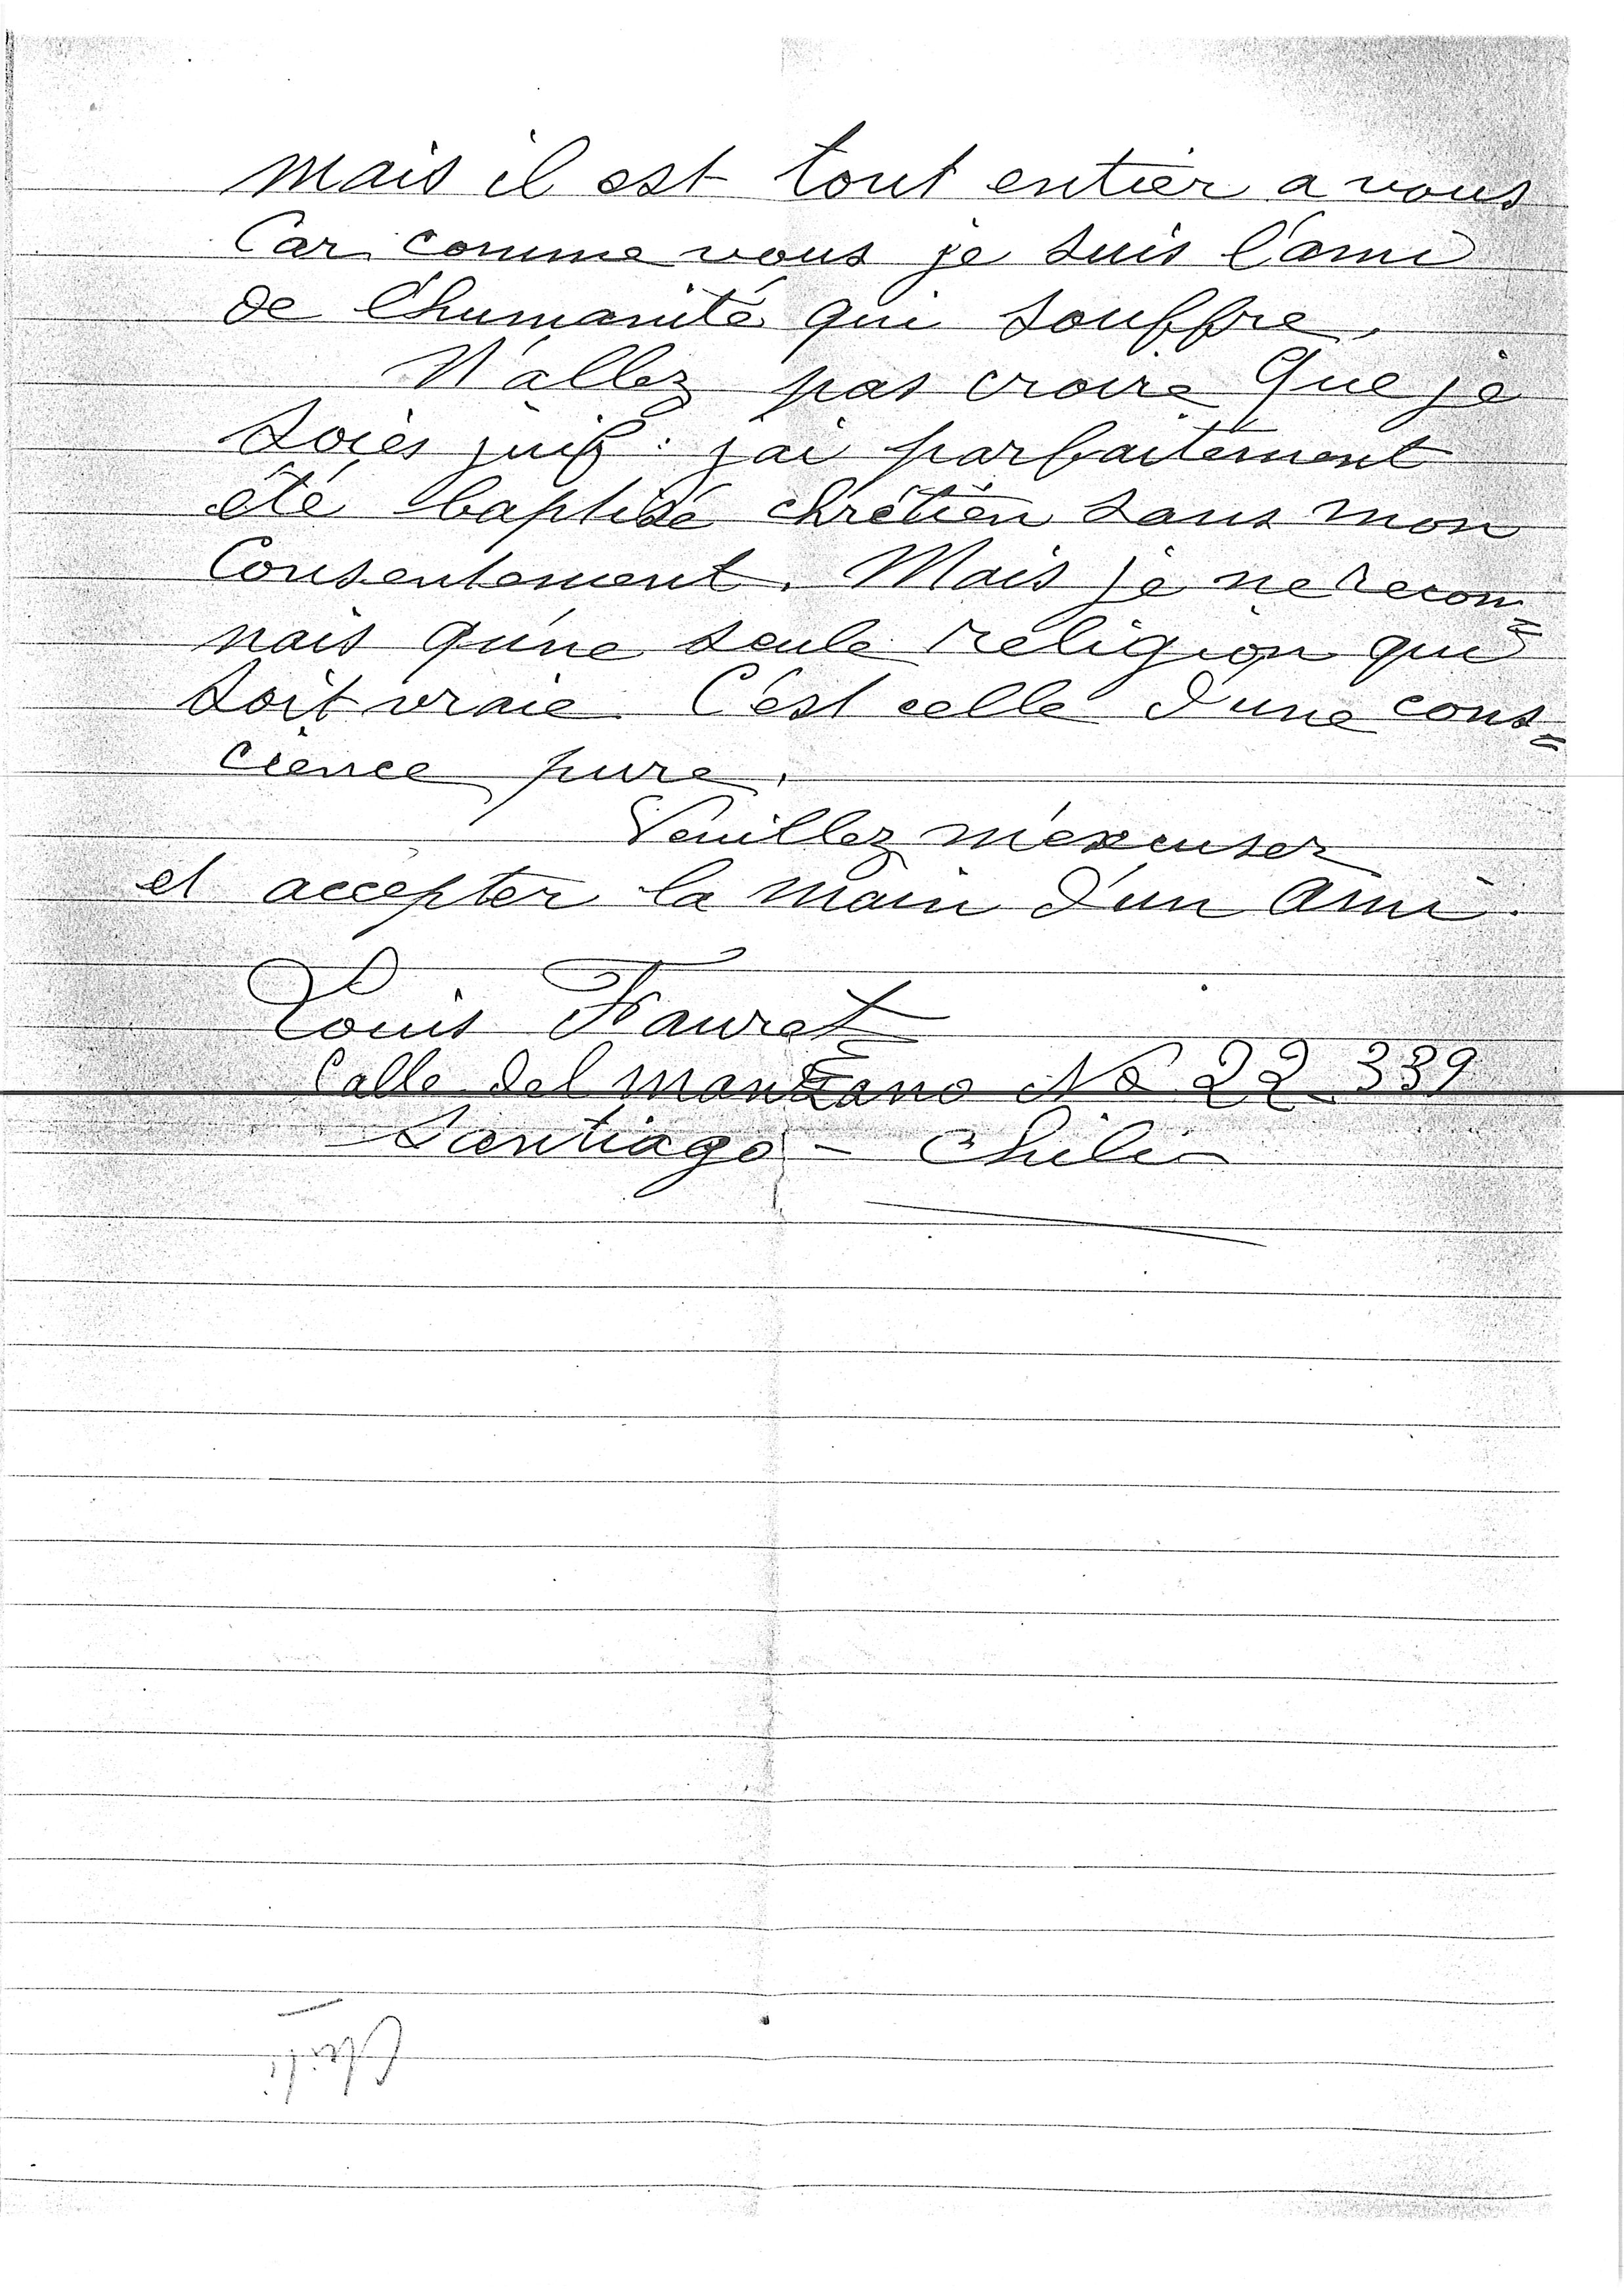 mais il est tout entier a vous
Car comme vous je suis l'ami
de l'humanité qui souffre.
N'allez pas croire que je
soies juif : j'ai parfaitement
été baptisé chrétien sans mon
Consentement. Mais je ne recon=
nais qu'une seule religion qui
soit vraie. C'est celle d'une cons=
cience pure.
Veuillez m'excuser
et accepter la main d'un Ami.
Louis Fauret
Calle del manzano No 22 339
Santiago - Chili
Chili